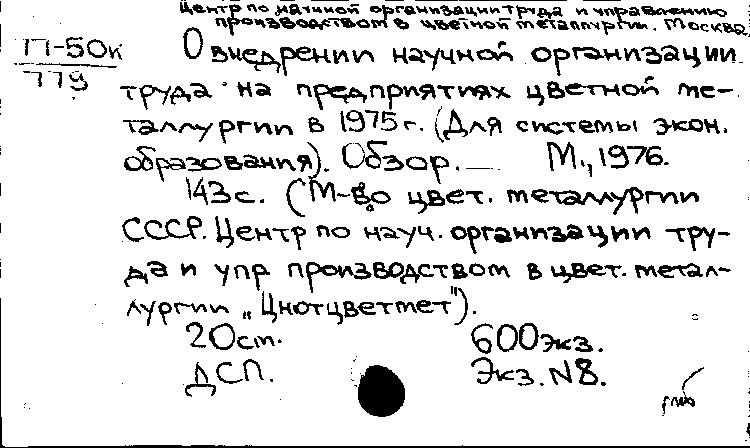 Центр по научной организации труда и управлению
производством в цветной металлургии. Москва
П-50к
779
О внедрении научной организации
труда на предприятиях цветной ме-
таллургии в 1975 г. (Для системы экон.
образования). Обзор. — М., 1976.
143 с. (М-во цвет. металлургии
СССР. Центр по науч. организации тру-
да и упр производством в цвет. метал-
лургии „Цнотцветмет").
20 см. 600 экз.
ДСП. Экз. N8.